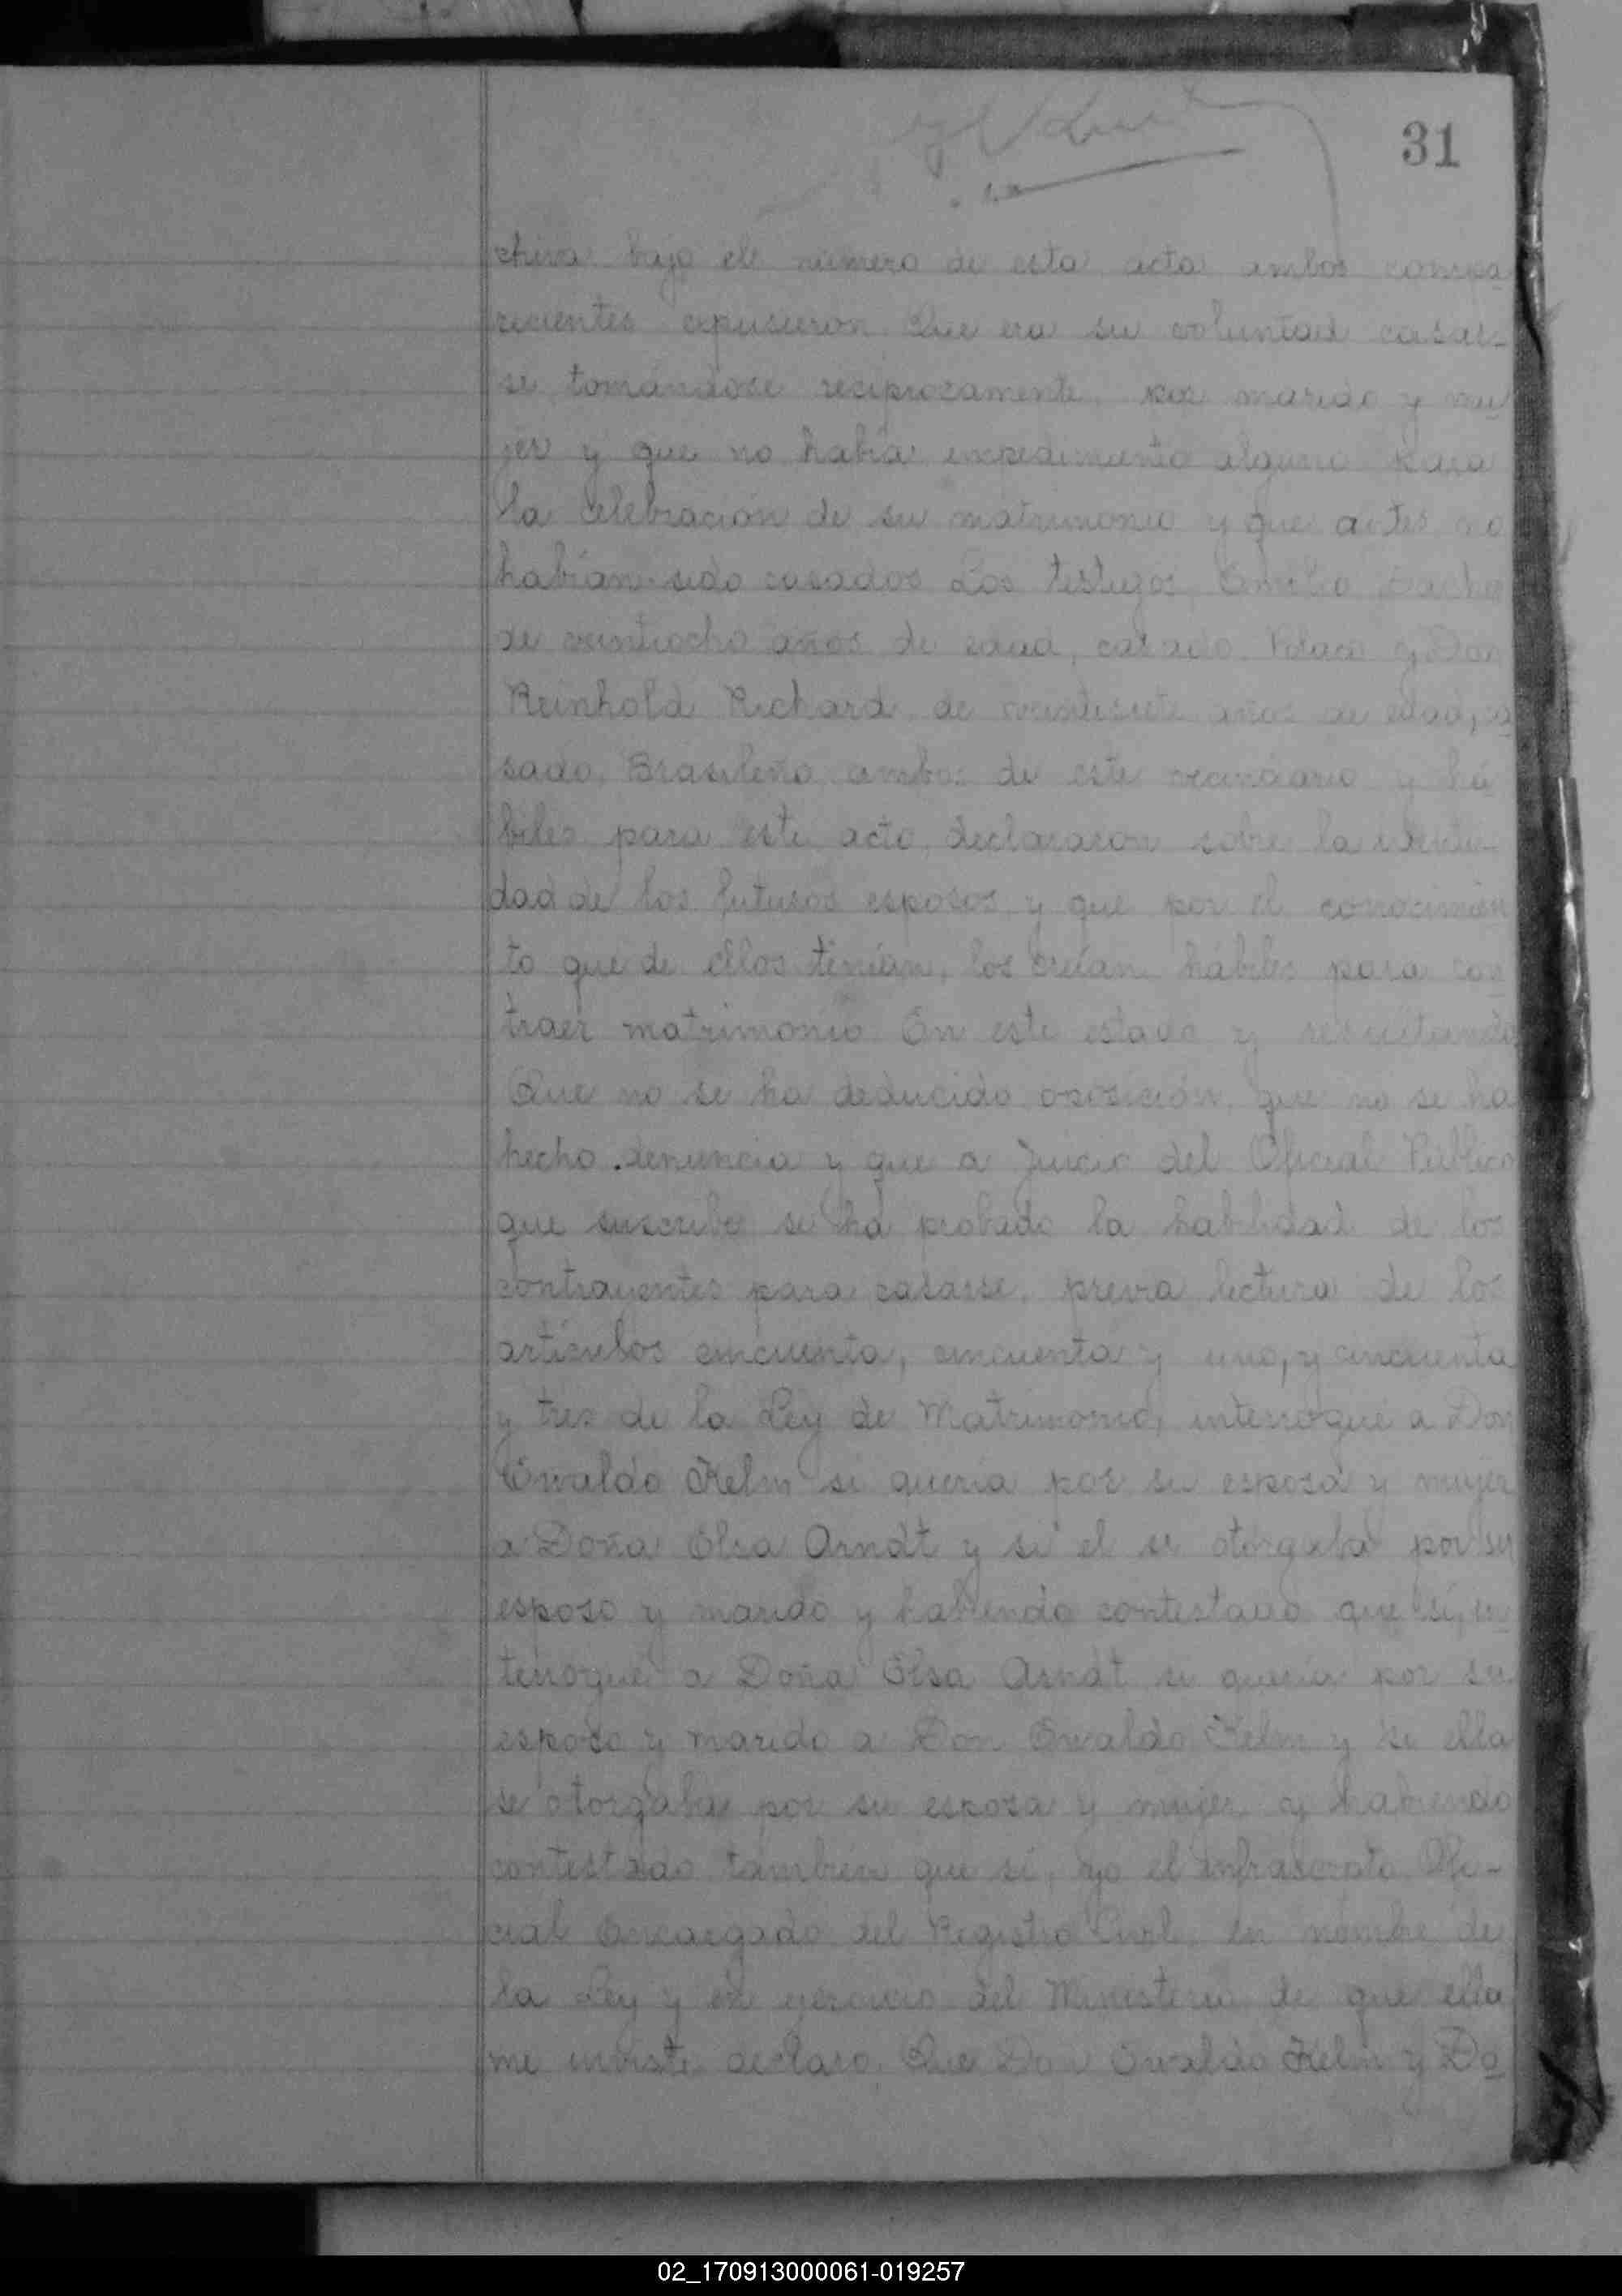 31
chiva bajo el número de esta acta ambos compa
recientes expusieron Que era su voluntad casar-
se tomándose reciprocamente por marido y mu
jer y que no había impedimento alguno para
la celebración de su matrimonio y que antes no
habían sido casados Los testigos Emilio
de veintiocho años de edad, casado Polaco y Don
Reinhold Richard de veintisiete años de edad, ca
sado, Brasileño ambos de este vecindario y há
biles para este acto, declararon sobre la identi-
dad de los futuros esposos y que por el conocimien
to que de ellos tenían, los creían hábiles para con
traer matrimonio En este estado y resultando
Que no se ha deducido oposición que no se ha
hecho denuncia y que a juicio del Oficial Público
que suscribe se ha probado la habilidad de los
contrayentes para casarse, previa lectura de los
artículos cincuenta, cincuenta y uno, y cincuenta
y tres de la Ley de Matrimonio, interrogué a Don
Osvaldo Kelm si quería por su esposa y mujer
a Doña Elsa Arndt y si el se otorgaba por su
esposo y marido y habiendo contestado que sí, in
terrogué a Doña Elsa Arndt si quería por su
esposo y marido a Don Osvaldo Kelm y si ella
se otorgaba por su esposa y mujer y habiendo
contestado también que sí, yo el infrascrato Ofi-
cial Encargado del Registro Civil, en nombre de
la Ley y en ejercicio del Ministerio de que ella
me inviste declaro Que Don Osvaldo Kelm y Do
02_170913000061-019257